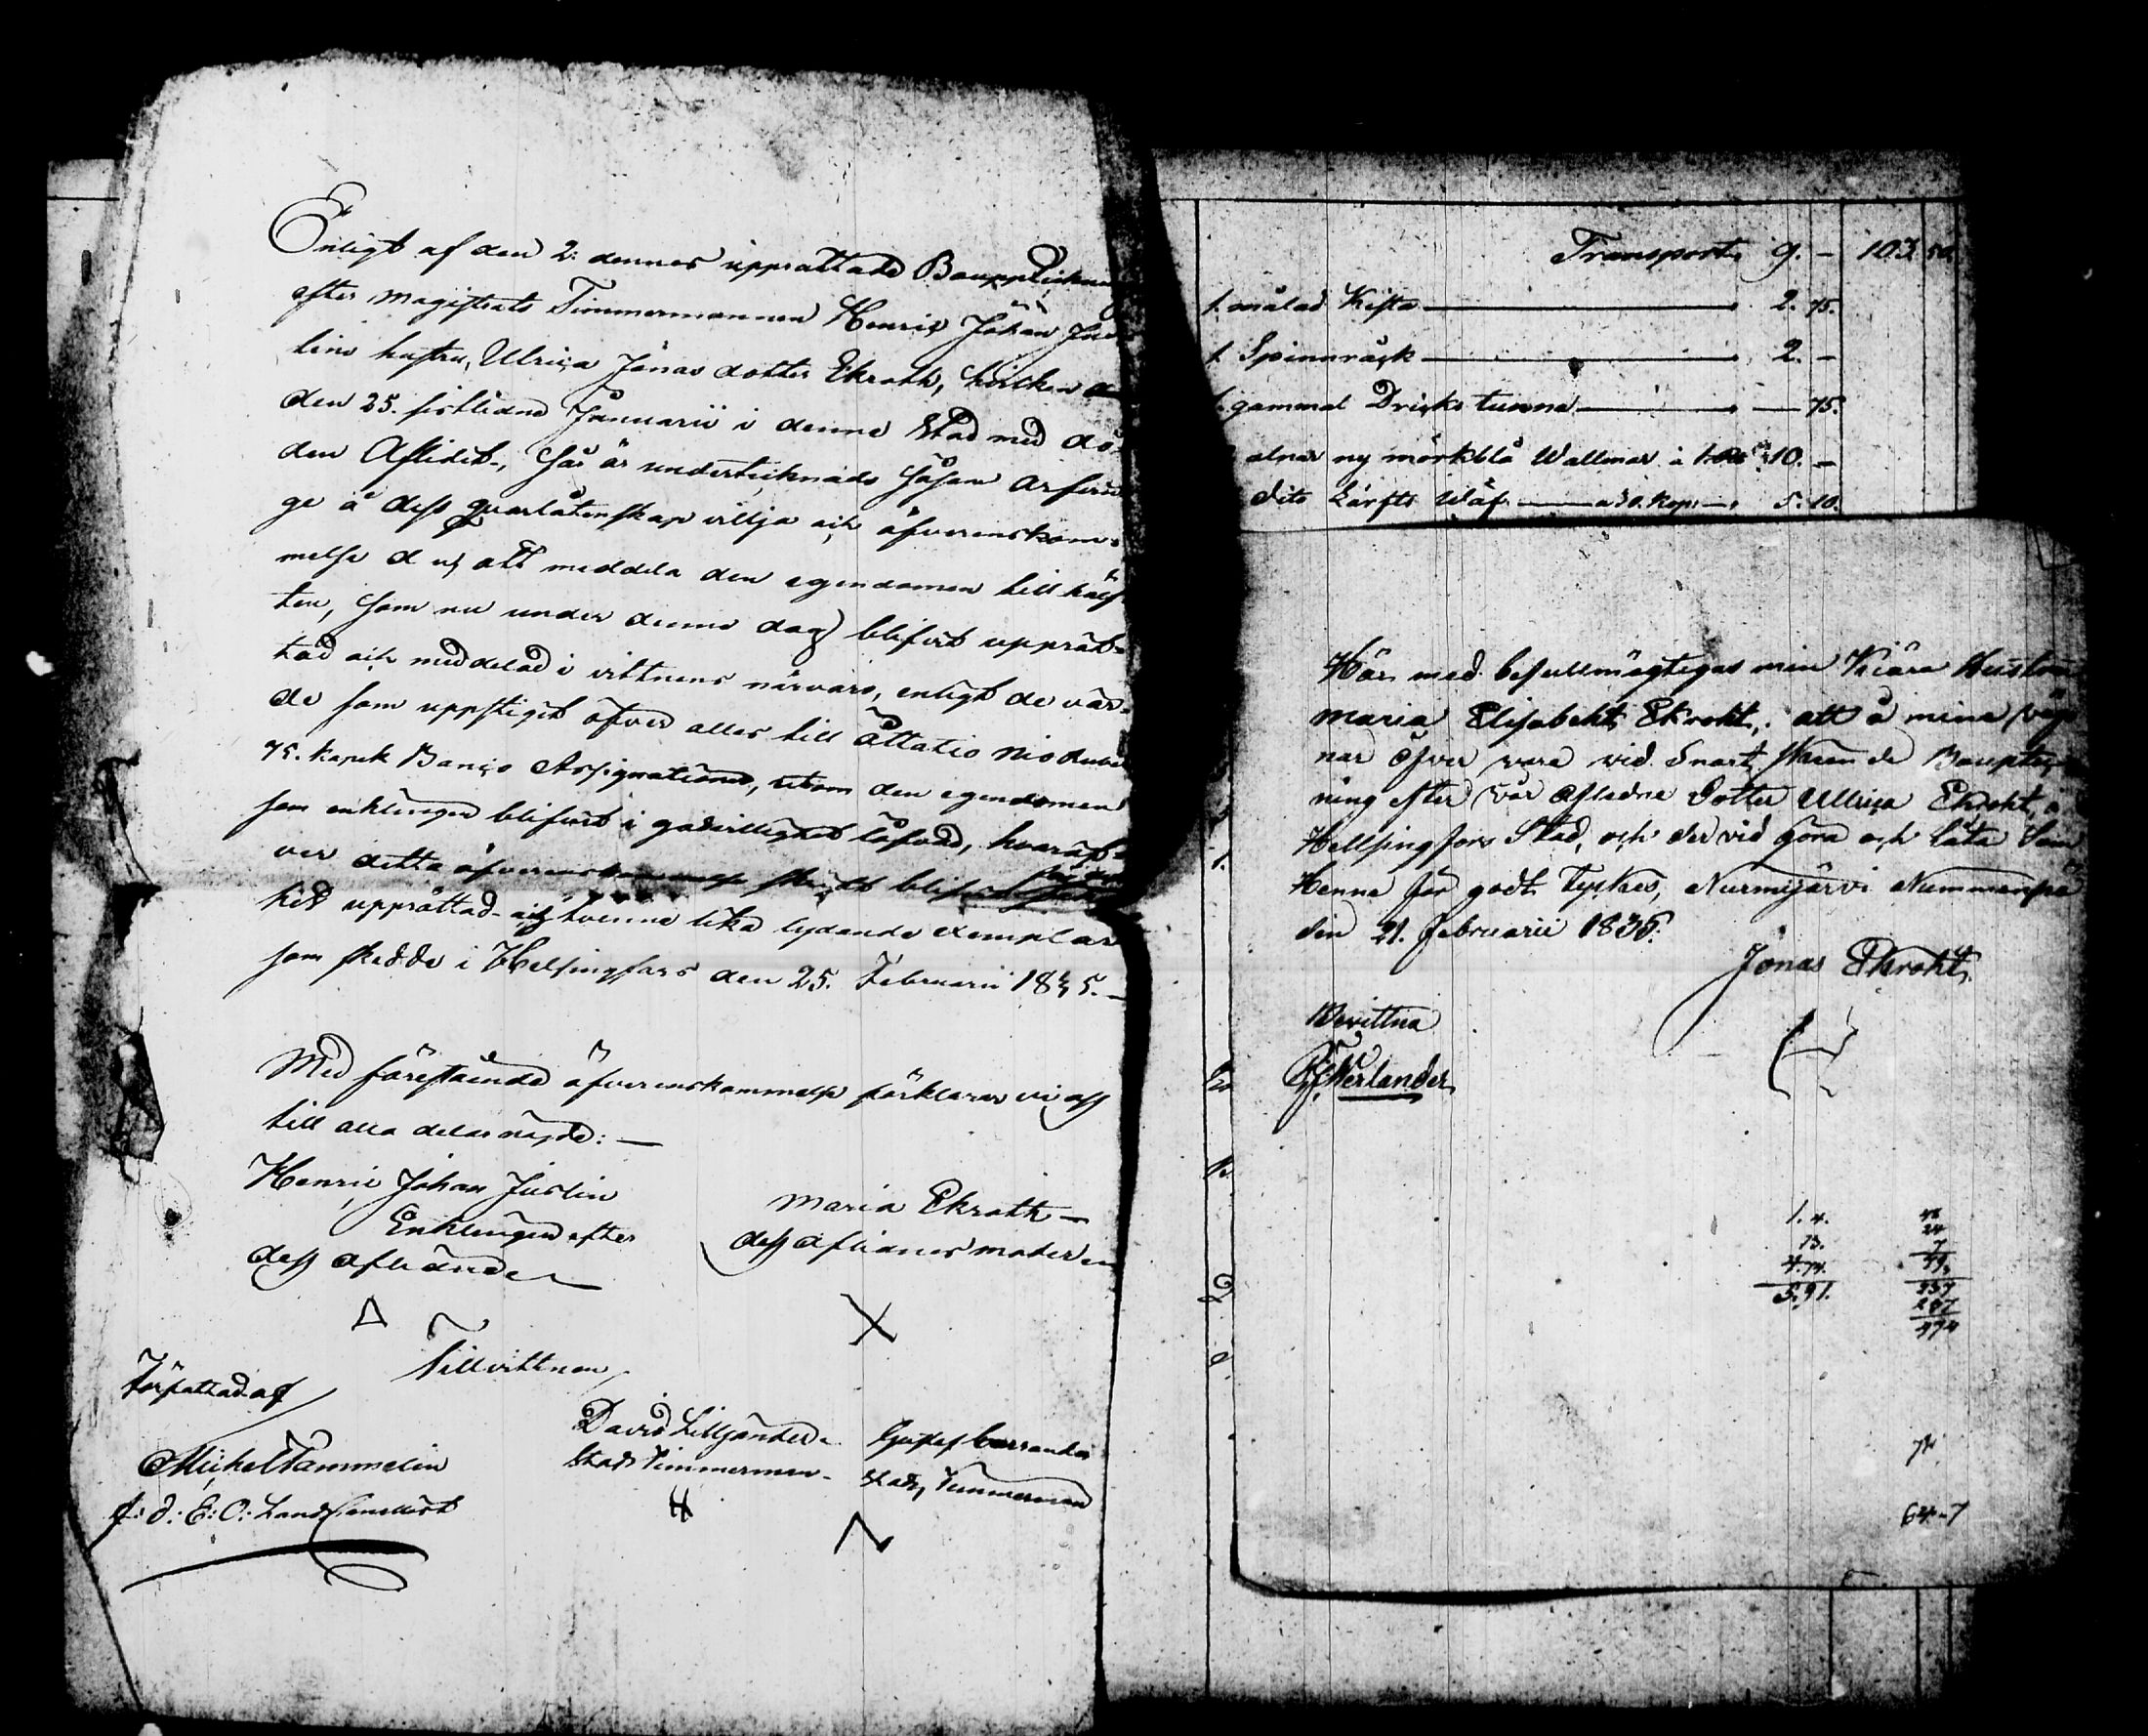 Enligt af den 2: dennes upprättade Boupptekni
efter Magistrats Timmermannen Henric Johan Jus
lins hustru, Ulrica Jonas dotter Ekroth, hvilken
den 25. sistledne Januarii i denne Stad med dö¬
den Aflidit, Så är undertecknade Såsom arfvin
ge å dess qvarlåtenskap villja och öfverenskom¬
melse att meddela den egendomen till hälf
ten, som nu under denne dag blifvit upprät¬
tad och meddelad i vittnens närvaro, enligt de vär¬
de som uppstigit öfver alles till Åttatio nio Rube
75. kopek Banco Assignationer, utom den egendomen
som enklingen blifvit i godvillighet låfvad, hvaröf¬
ver detta öfverenskommelse blifvit
upprättad tvenne lika lydande exemplar
som skedde i Helsingfors den 25. Februarii 1835.—
Med föreståénde öfverenskommelse förklarar vi oss
till alla delar nöjde:—
Henric Johan Juslin
Enklingen efter
dess aflidne
Maria Ekroth —
dess aflidnes moder
X
Till vittnen
Författad af
Michel Tammelin
David Lilljander
Stads Timmerman
Gustaf
Stads Timmerman
H
N
Transport 9. – 103. 50.
1. målad Kista — 2. 75.
1. Spinnråck — 2. –
1. gammal Dricks tunna — 75.
alnar ny mörkblå Wallmar à 10. –
dito Lärfts Wäf — à 30. kop: — 5. 10.
Här med befullmägtigas min Kiära Hustru
Maria Elisabeht Ekroht, att å mine väg
nar öfver vara vid Snart skeende Boupteg
ning efter vår Afledne Dotter Ullrica Ekroht,
Hellsingfors Stad, och der vid göra och låta Som
Henne för godt Tyckes, Nurmijärvi Nummenpä
den 21. Februarii 1835.
Jonas Ekroht
Bevittna
1. 4.
13.
4.74.
5.91.
48
24
7
237
237
474
74
64-7